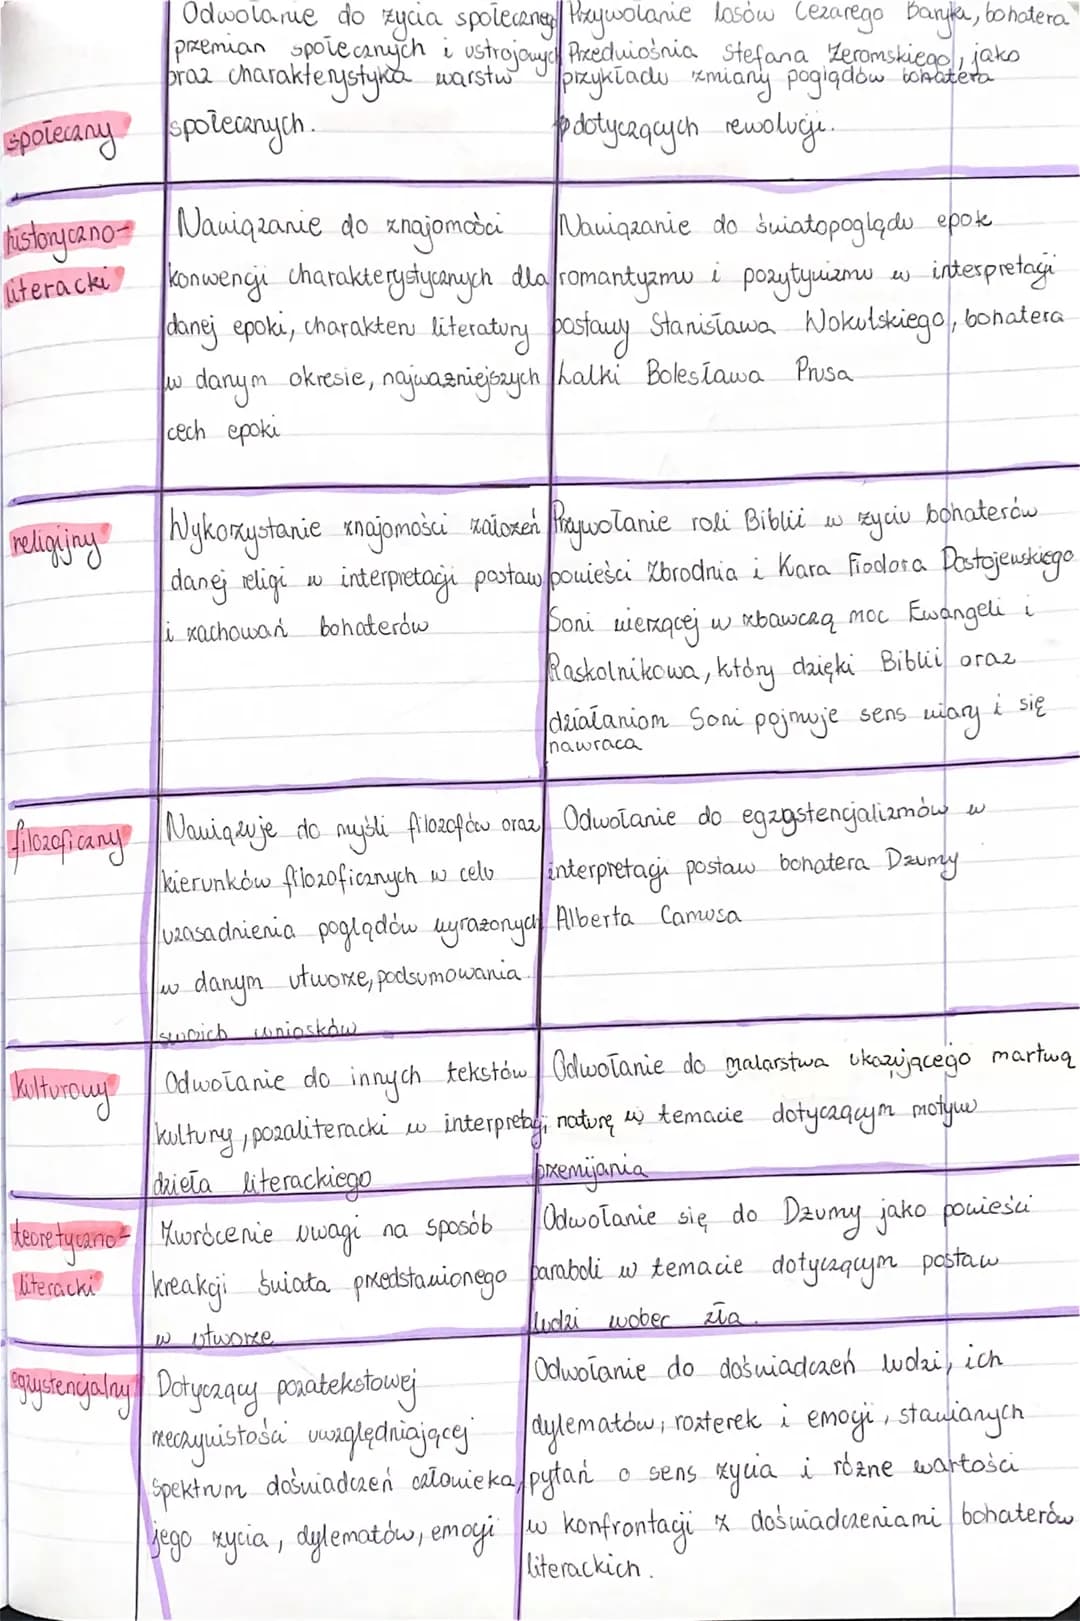 społeczny
Odwołanie do życia społecznego
przemian społecznych i ustrojowych
oraz charakterystyka warstw
społecznych.
Przywołanie losów Cezarego Baryki, bohatera
Przedwiośnia Stefana Żeromskiego, jako
przykładu zmiany poglądów bohatera
dotyczących rewolucji.
historyczno-
literacki
Nawiązanie do znajomości
konwencji charakterystycznych dla
danej epoki, charakteru literatury
w danym okresie, najważniejszych
cech epoki
Nawiązanie do światopoglądu epok
romantyzmu i pozytywizmu w interpretacji
postawy Stanisława Wokulskiego, bohatera
Lalki Bolesława Prusa
religijny
Wykorzystanie znajomości założeń
danej religi w interpretacji postaw
i zachowań bohaterów
Przywołanie roli Biblii w życiu bohaterów
powieści Zbrodnia i Kara Fiodora Dostojewskiego
Soni wierzącej w zbawczą moc Ewangeli i
Raskolnikowa, który dzięki Biblii oraz
działaniom Soni pojmuje sens wiary i się
nawraca
filozoficzny
Nawiązuje do myśli filozofów oraz
kierunków filozoficznych w celu
uzasadnienia poglądów wyrażonych
w danym utworze, podsumowania
swoich wniosków
Odwołanie do egzystencjalizmów w
interpretacji postaw bohatera Dżumy
Alberta Camusa
kulturowy
Odwołanie do innych tekstów
kultury, pozaliteracki w interpretacji
dzieła literackiego
Odwołanie do malarstwa ukazującego martwą
naturę w temacie dotyczącym motywu
przemijania
teoretyczno-
literacki
Zwrócenie uwagi na sposób
kreakcji świata przedstawionego
w utworze
Odwołanie się do Dżumy jako powieści
paraboli w temacie dotyczącym postaw
ludzi wobec zła.
egzystencjalny
Dotyczący pozatekstowej
rzeczywistości uwzględniającej
spektrum doświadczeń człowieka,
jego życia, dylematów, emocji
Odwołanie do doświadczeń ludzi, ich
dylematów, rozterek i emocji, stawianych
pytań o sens życia i różne wartości
w konfrontacji z doświadczeniami bohaterów
literackich.